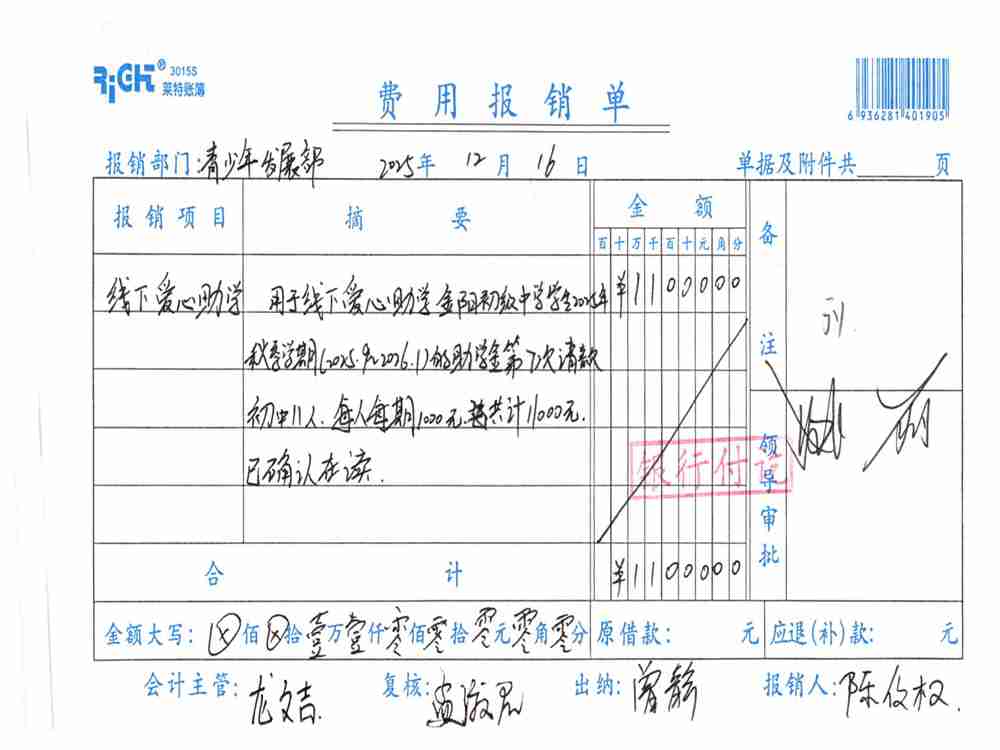 RiCH® 3015S
莱特账簿
费用报销单
6 936281 401905
报销部门:青少年发展部 2025年 12月 16日 单据及附件共 页
报销项目 摘要 金额 备注
百十万千百十元角分
线下爱心助学 用于线下爱心助学金阳初级中学学生2025年 ¥1100000
秋季学期(2025.9~2026.1)的助学金第72次请款
初中11人.每人每期1000元.共计11000元.
已确认在读.
银行付讫
领导审批
合计 ¥1100000
金额大写: ⊗佰⊗拾壹万壹仟零佰零拾零元零角零分 原借款: 元 应退(补)款: 元
会计主管:龙文吉. 复核: 出纳:曾静 报销人:陈